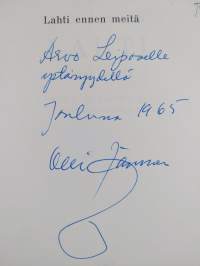 Lahti ennen meitä
Arvo Leposelle
ystävyydellä
Jouluna 1965
Olli Järvinen